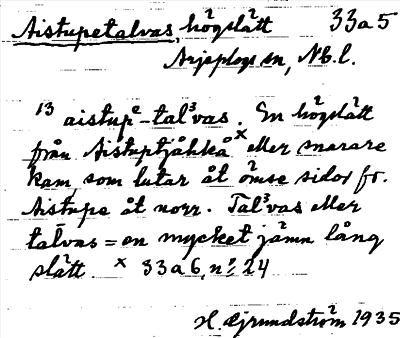 Aistupetalvas, högslätt 33a5
Arjeplogs sn, Nb.l.
13 aistupe-tal³vas. En högslätt
från Aistuptjåkkå x eller snarare
kam, som lutar åt ömse sidor fr.
Aistupe åt norr. Tal³vas eller
talvas = en mycket jämn lång
slätt. x 33a6, nr 24
H. Grundström 1935